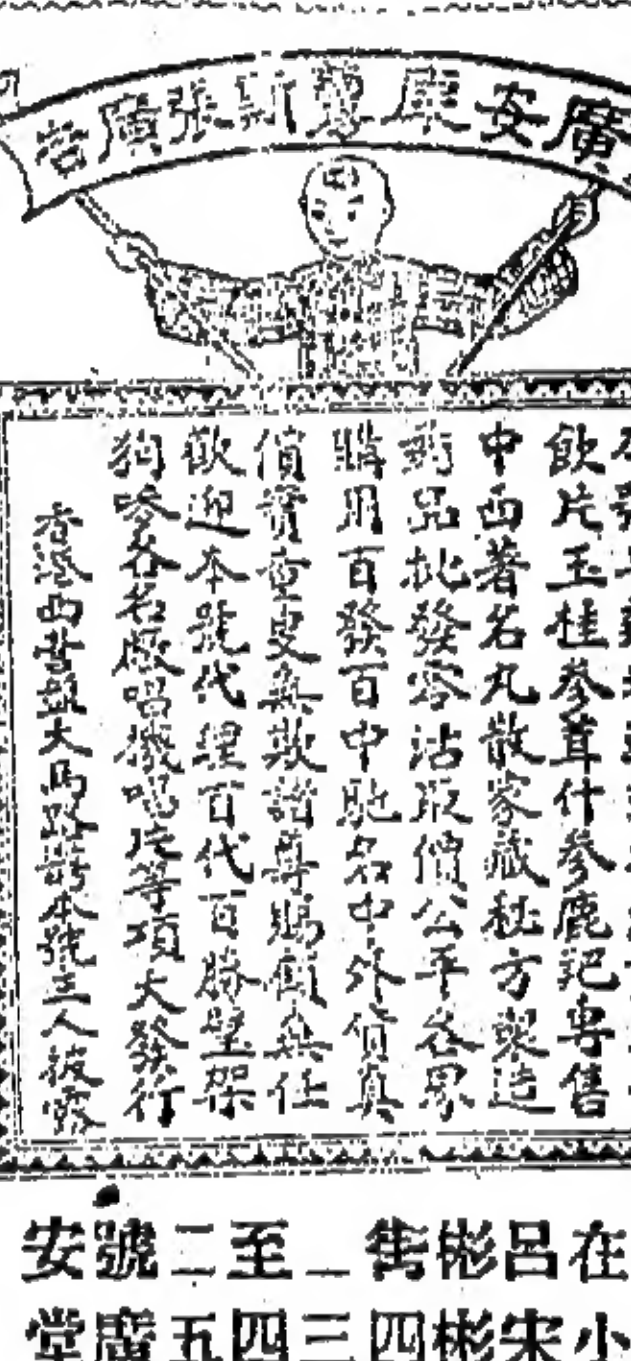 廣安康斯張廣告
飲片玉桂參茸什參鹿記專售
中西著名丸散家藏秘方製造
药品批發零沽取價公平各界
購用百發百中馳名中外貨真
價實童叟無欺諸尊賜顧無任
歡迎本號代理百代百勝璧架
狗嘜各名廠唱機唱片等項大發行
香港西營盤大馬路本號主人披露
在小呂宋彬彬街四一三至四二五號廣安堂